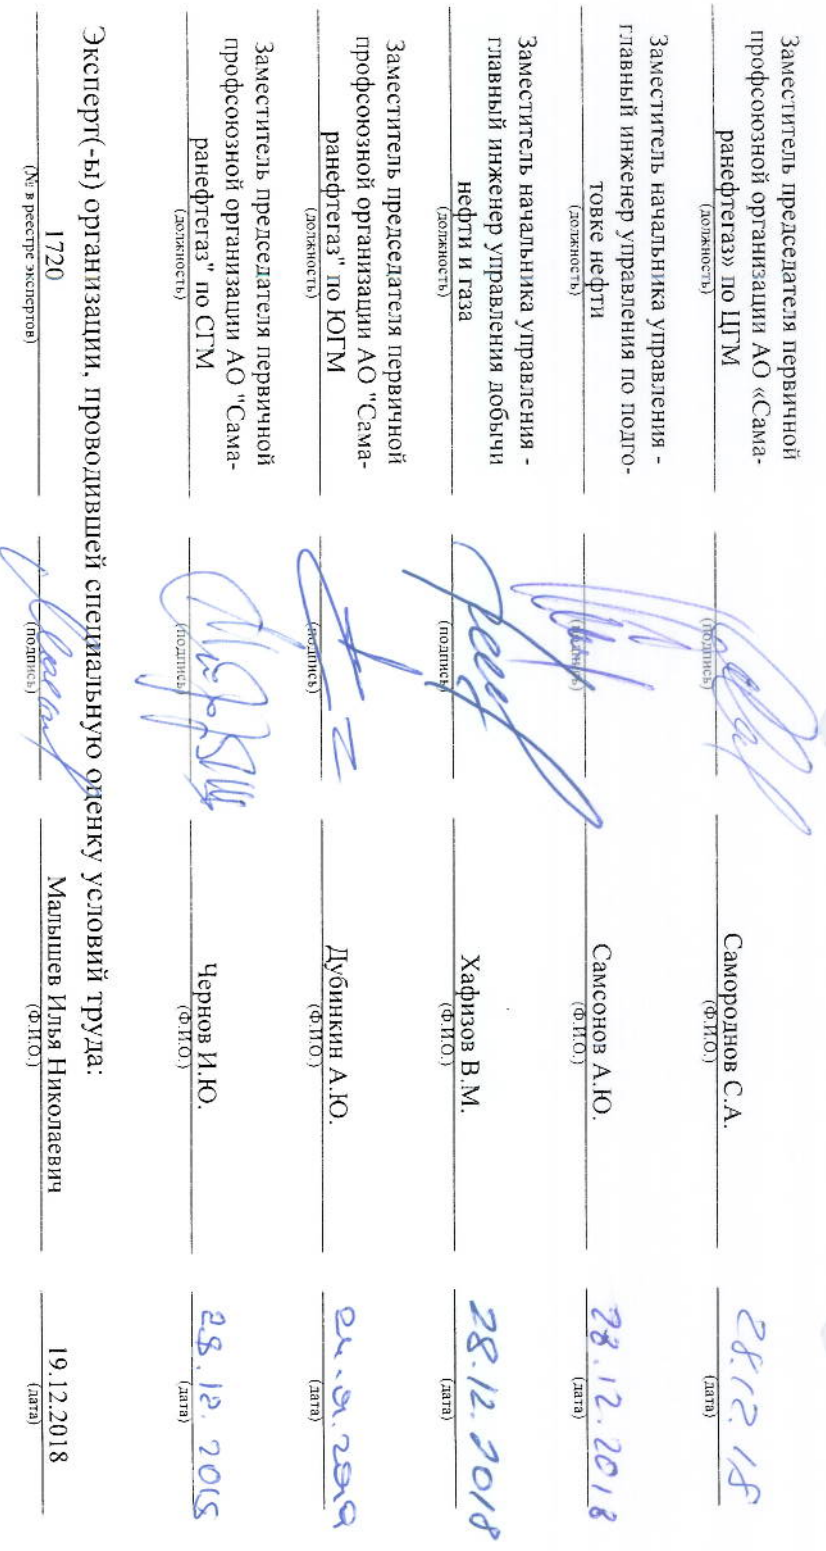 Заместитель председателя первичной
профсоюзной организации АО «Сама-
ранефтегаз» по ЦГМ
(должность)
(подпись)
Самороднов С.А.
(Ф.И.О.)
28.12.18
(дата)
Заместитель начальника управления -
главный инженер управления по подго-
товке нефти
(должность)
(подпись)
Самсонов А.Ю.
(Ф.И.О.)
28.12.2018
(дата)
Заместитель начальника управления -
главный инженер управления добычи
нефти и газа
(должность)
(подпись)
Хафизов В.М.
(Ф.И.О.)
28.12.2018
(дата)
Заместитель председателя первичной
профсоюзной организации АО "Сама-
ранефтегаз" по ЮГМ
(должность)
(подпись)
Дубинкин А.Ю.
(Ф.И.О.)
(дата)
Заместитель председателя первичной
профсоюзной организации АО "Сама-
ранефтегаз" по СГМ
(должность)
(подпись)
Чернов И.Ю.
(Ф.И.О.)
28.12.2018
(дата)
Эксперт(-ы) организации, проводившей специальную оценку условий труда:
1720
(№ в реестре экспертов)
(подпись)
Малышев Илья Николаевич
(Ф.И.О.)
19.12.2018
(дата)